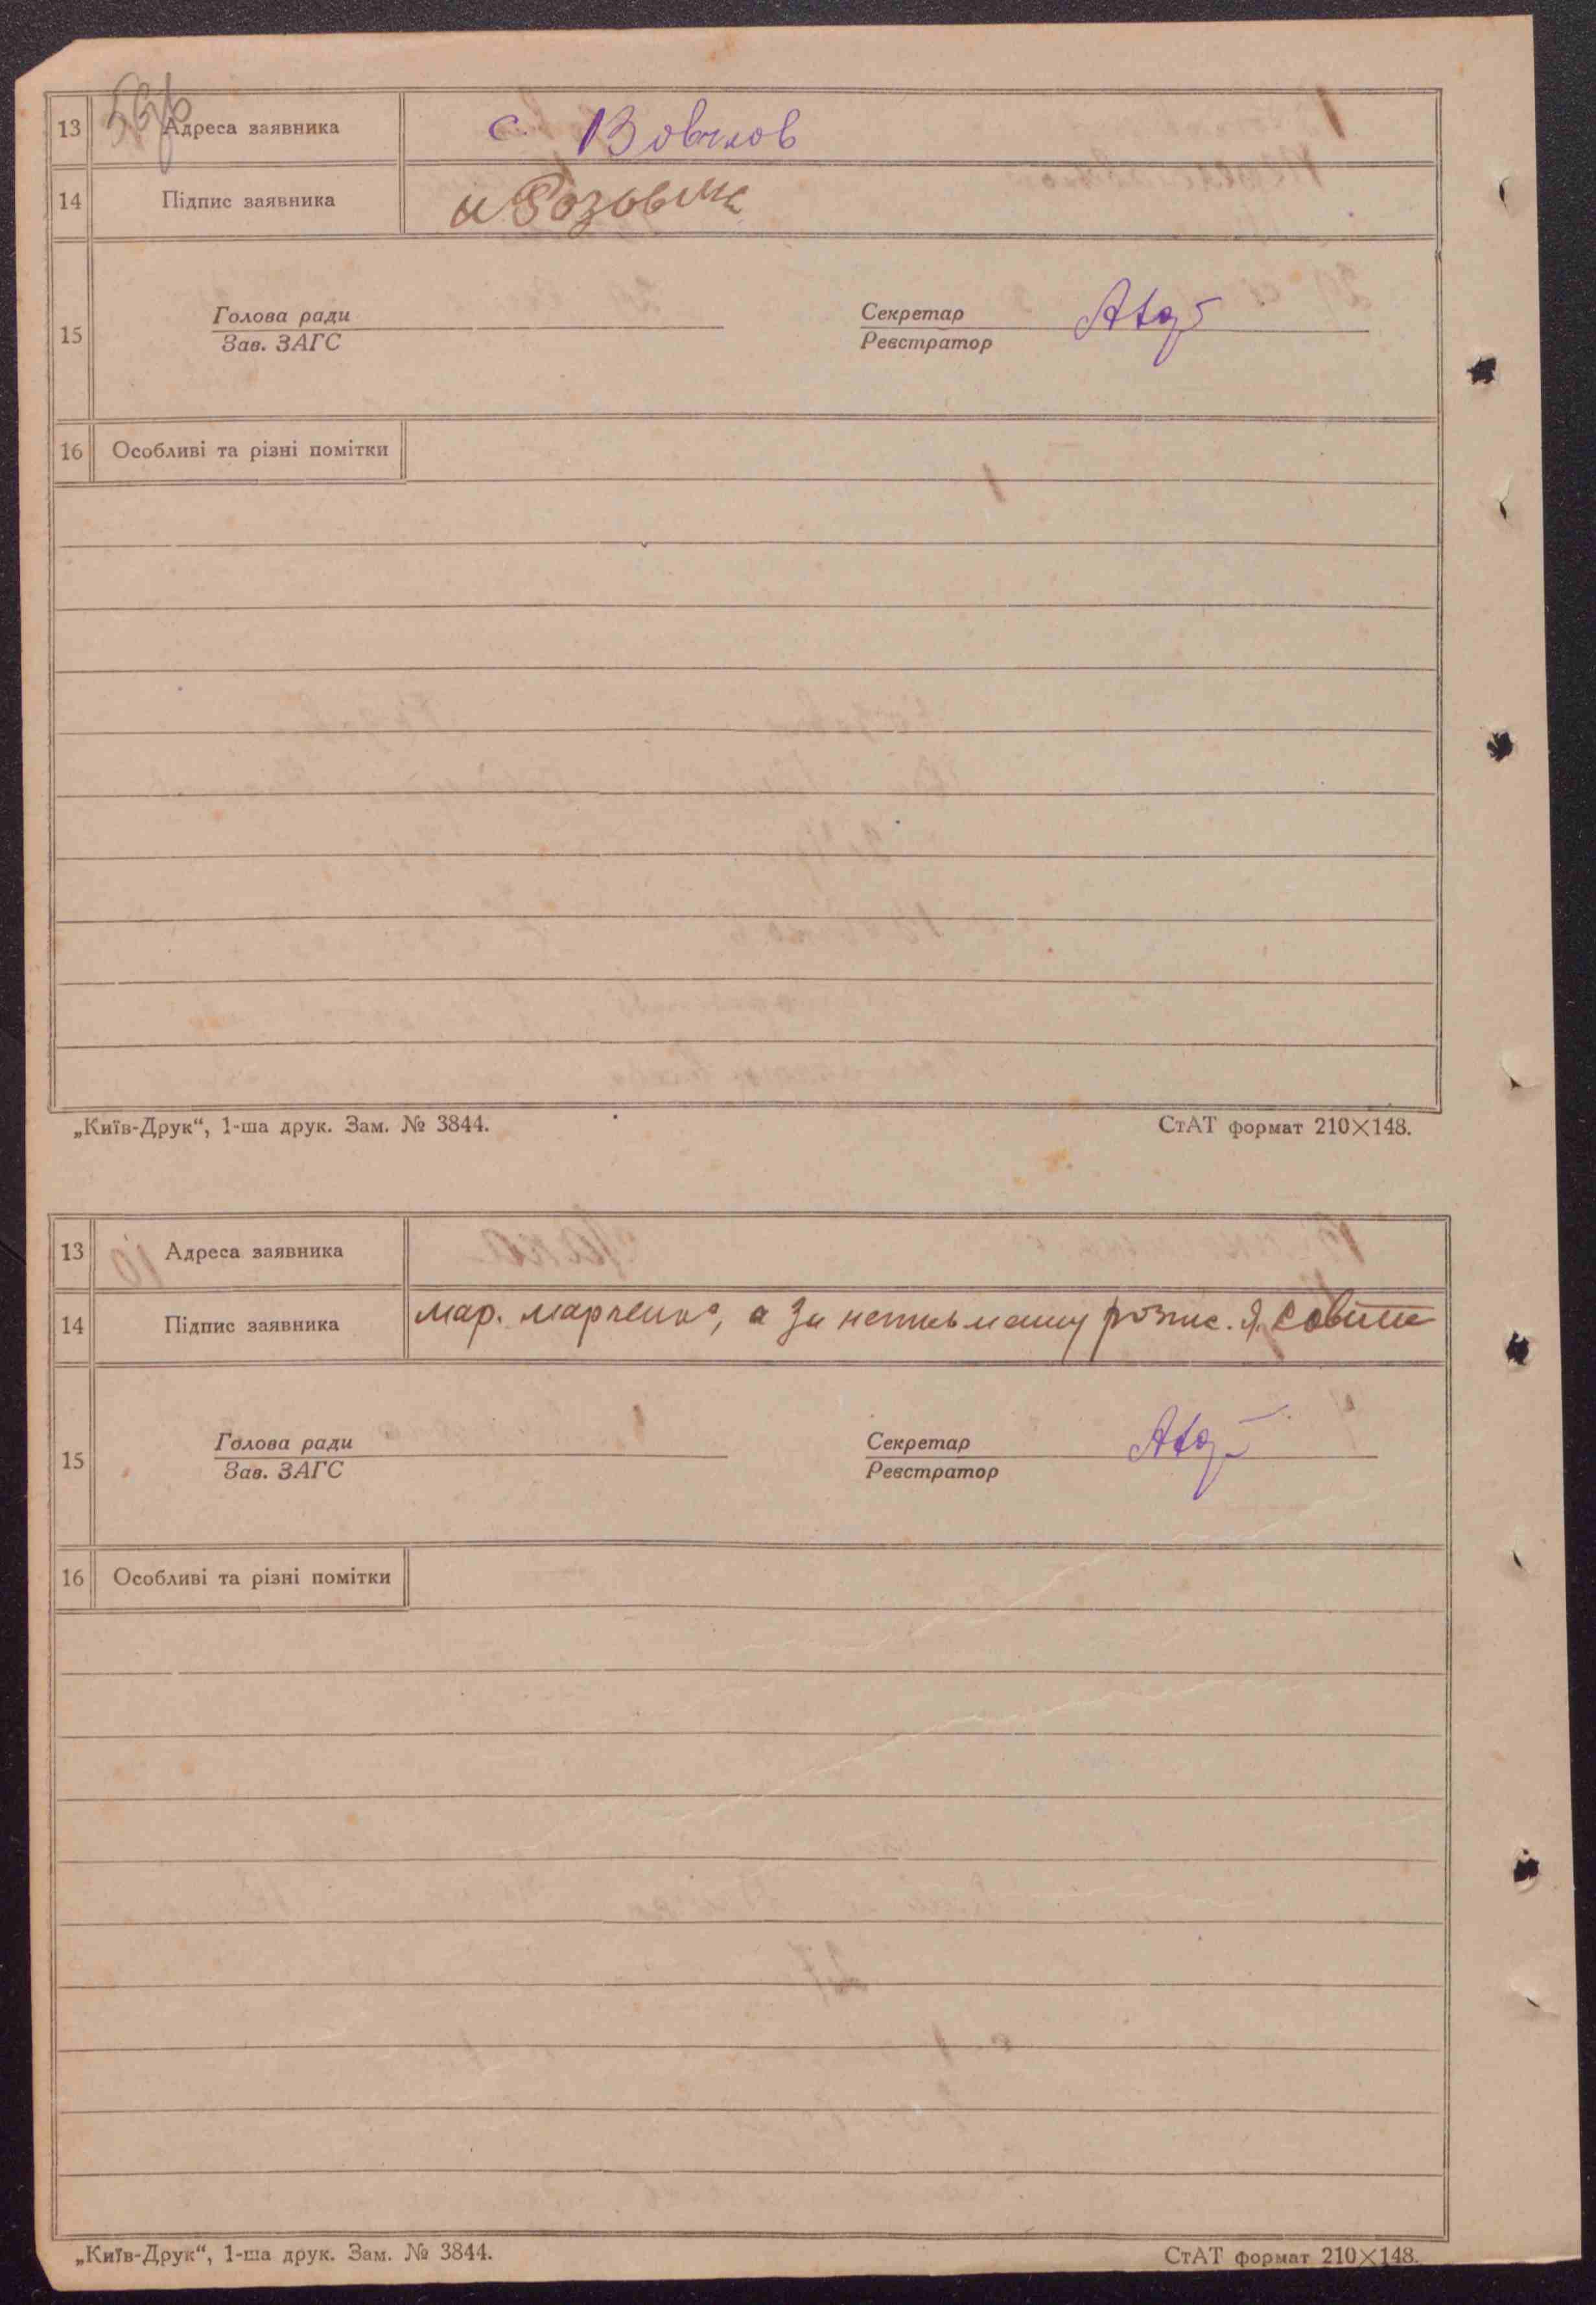 56
13 Адреса заявника с. Вовчков
14 Підпис заявника Розовик
15 Голова ради Секретар
Зав. ЗАГС Реєстратор
16 Особливі та різні помітки
„Київ-Друк“, 1-ша друк. Зам. № 3844. СтАТ формат 210×148.
13 Адреса заявника
14 Підпис заявника мар. марченко, а за неписьменну розпис. Я.
15 Голова ради Секретар
Зав. ЗАГС Реєстратор
16 Особливі та різні помітки
„Київ-Друк“, 1-ша друк. Зам. № 3844. СтАТ формат 210×148.